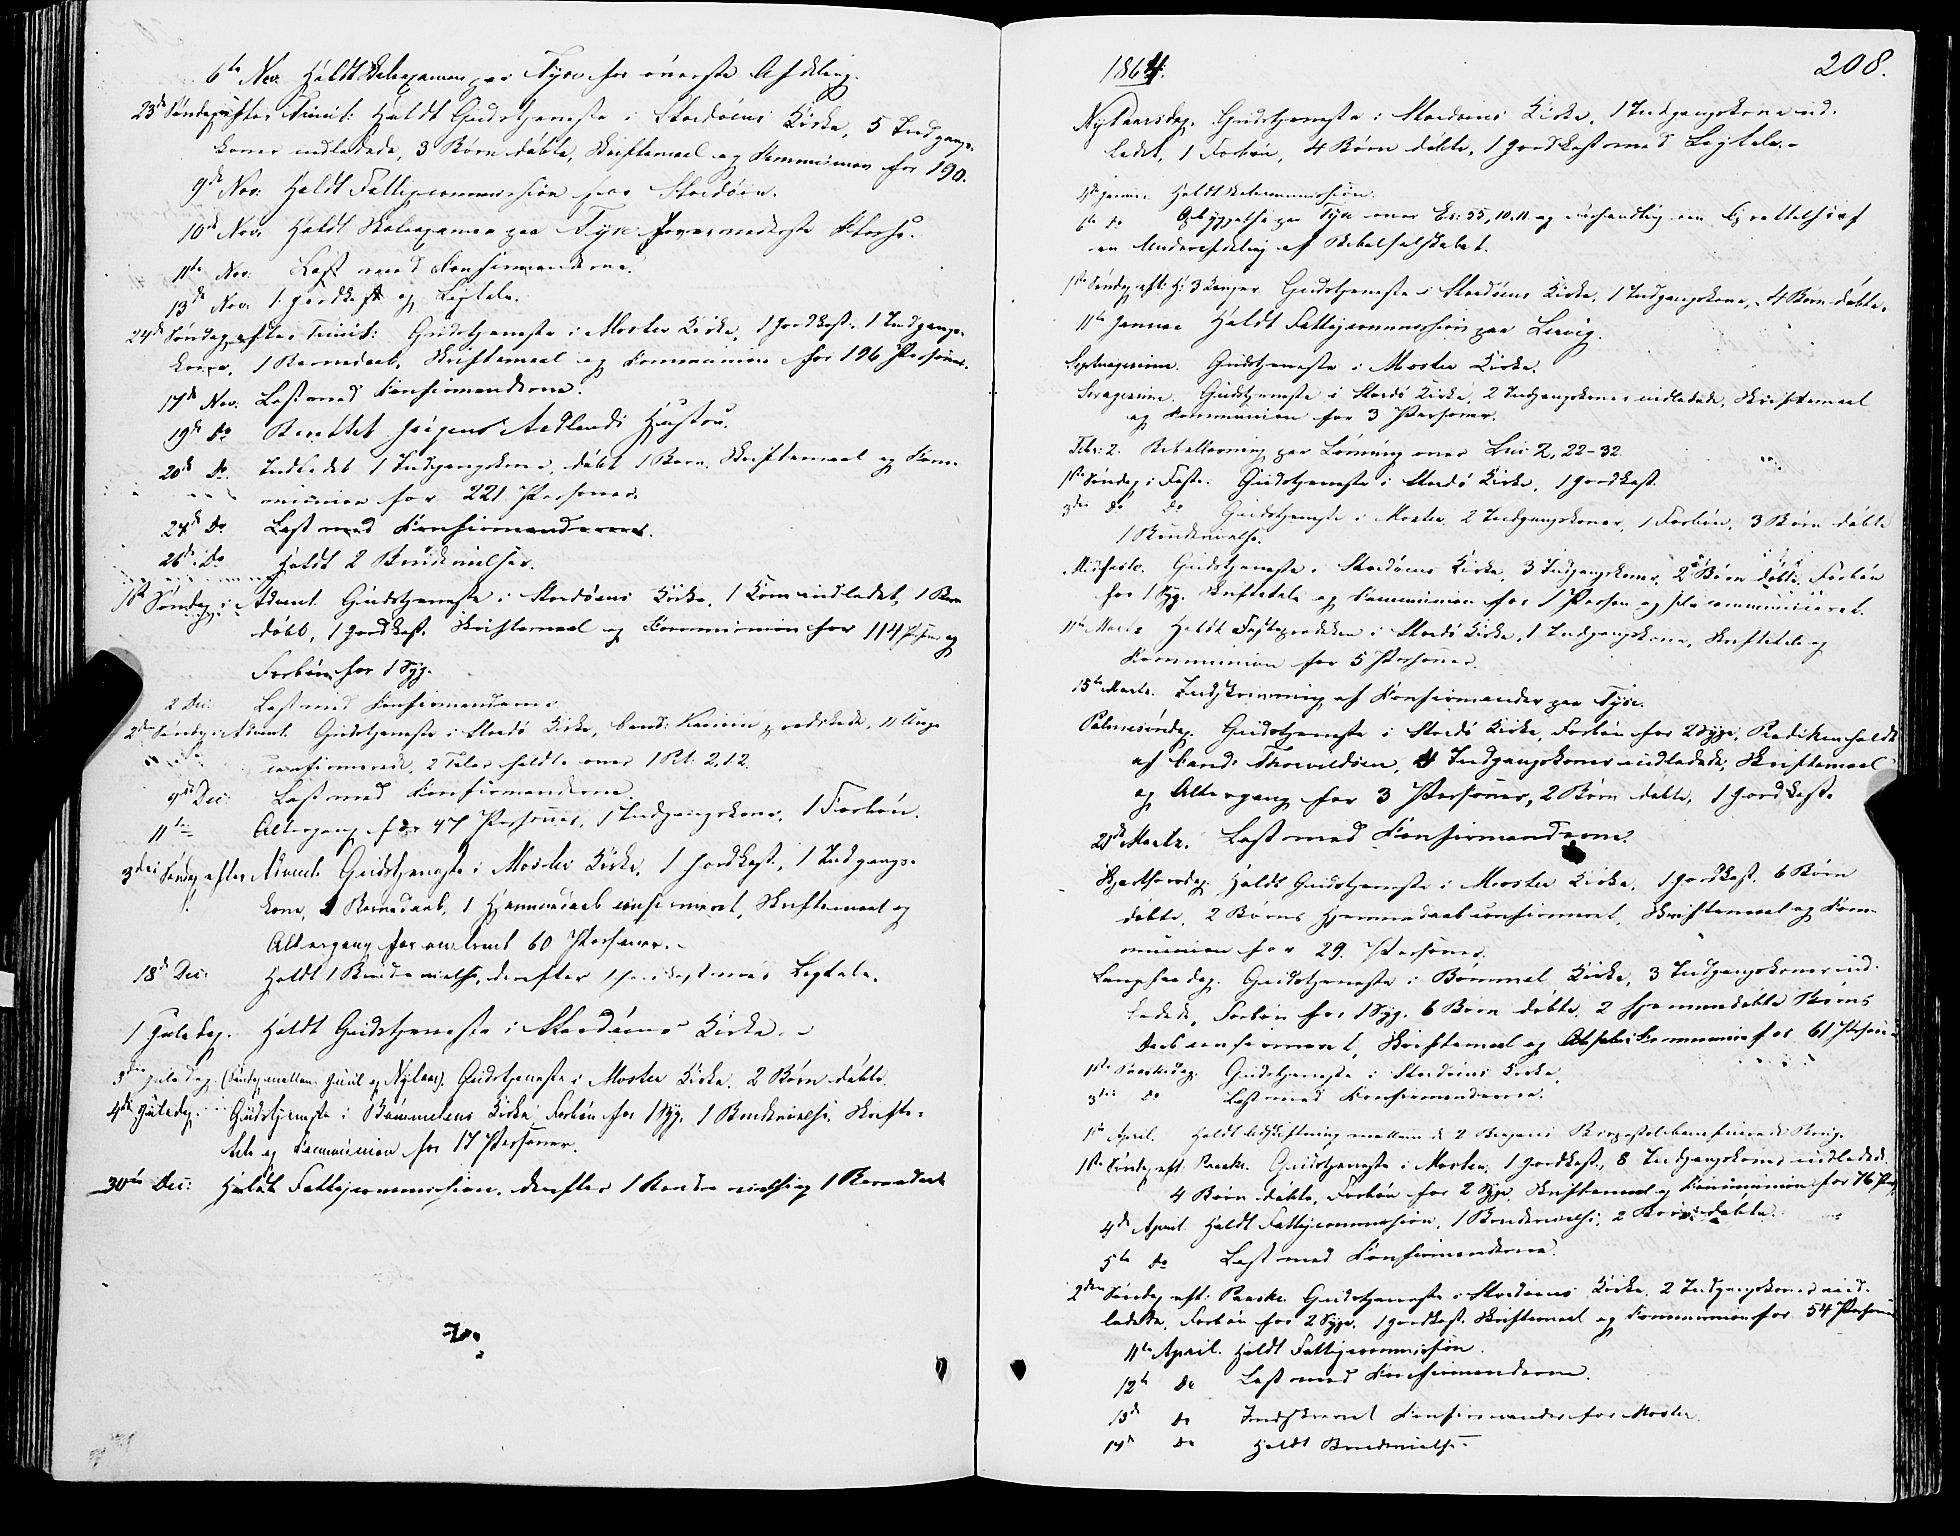 6te Nov. Holdt Skoleexamen paa Tyse for øverste Afdeling.
23de Søndag efter Trinit: Holdt Gudstjeneste i Stordøens Kirke, 5 Indgangs-
koner indledede, 3 Børn døbte, Skriftemaal og Kommunion for 190.
9de Nov. Holdt Fattigcommission paa Stordøen.
10de Nov. Holdt Skoleexamen paa Tyse
11te Nov. Læst med Konfirmanderne.
13de Nov. 1 Jordkast og Ligtale.
24de Søndag efter Trinit: Gudstjeneste i Moster Kirke, 1 Jordkast. 1 Indgangs-
kone, 1 Barnedaab, Skriftemaal og Kommunion for 196 Personer.
17de Nov. Læst med Konfirmanderne.
19de Do Berettet Jørgens Adlands Hustru.
20de Do Indledet 1 Indgangskone, døbt 1 Barn, Skriftemaal og Kom-
munion for 221 Personer.
24de Do Læst med Konfirmanderne.
26de Do Holdt 2 Brudevielser.
1ste Søndag i Advent. Gudstjeneste i Stordøens Kirke, 1 Kone indledet, 1 Barn
døbt, 1 Jordkast. Skriftemaal og Kommunion for 114 Pers. og
Forbøn for 1 Syg.
2 Dec: Læst med Konfirmanderne
2den Søndag i Advent. Gudstjeneste i Stordø Kirke, Cand: prædikede, 11 Unge
confirmerede, 2 Taler holdte over 1 Pet. 2, 1.2.
9de Dec: Læst med Konfirmanderne.
11te Altergang for 47 Personer, 1 Indgangskone, 1 Forbøn.
3die Søndag efter Advent. Gudstjeneste i Moster Kirke, 1 Jordkast, 1 Indgangs-
kone, 1 Barnedaab, 1 Hjemmedaab confirmeret, Skriftemaal og
Altergang for omtrent 60 Personer.
18de Dec: Holdt 1 Brudevielse, derefter 1 Jordkast med Ligtale.
1 Juledag. Holdt Gudstjeneste i Stordøens Kirke.
3die Juledag (Søndag mellem Juul og Nytaar). Gudstjeneste i Moster Kirke. 2 Børn døbte.
4de Juledag. Gudstjeneste i Bømmelens Kirke. Forbøn for 1 Syg. 1 Brudevielse, Skrifte-
tale og Kommunion for 17 Personer.
30te Dec: Holdt Fattigcommission, derefter 1 Brudevielse og 1 Barnedaab
208.
1864.
Nytaarsdag. Gudstjeneste i Stordøens Kirke, 1 Indgangskone ind-
ledet, 1 Forbøn, 4 Børn døbte, 1 Jordkast med Ligtale.
4de Januar Holdt Skolecommission.
6te Do Opbyggelse paa Tyse over Es: 55, 10.11 og Forhandling om Oprettelse af
en Underafdeling af Bibelselskabet.
1ste Søndag eft: H: 3 Konger. Gudstjeneste i Stordøens Kirke, 1 Indgangskone, 4 Børn døbte.
11te Januar Holdt Fattigcommission paa Lervig.
Septuagesima. Gudstjeneste i Moster Kirke.
Sexagesima. Gudstjeneste i Stordø Kirke, 2 Indgangskoner indledede, Skriftemaal
og Kommunion for 3 Personer.
Febr: 2. Bibellæsning paa Lønning over Luc 2, 22-32.
1ste Søndag i Faste. Gudstjeneste i Stordø Kirke, 1 Jordkast.
3die Do Do Gudstjeneste i Moster, 2 Indgangskoner, 1 Forbøn, 3 Børn døbte
1 Brudevielse.
Midfaste. Gudstjeneste i Stordøens Kirke, 3 Indgangskoner, 2 Børn døbte, Forbøn
for 1 Syg. Skriftetale og Kommunion for 1 Person
11te Marts Holdt Fasteprædiken i Stordø Kirke, 1 Indgangskone, Skriftetale og
Kommunion for 5 Personer.
15te Marts. Indskrivning af Konfirmander paa Tyse.
Palmesøndag. Gudstjeneste i Stordø Kirke, Forbøn for 2 Syge, Prædiken holdt
af Cand: Thorvildsen, 4 Indgangskoner indledede, Skriftemaal
og Altergang for 3 Personer, 2 Børn døbte, 1 Jordkast.
23de Marts. Læst med Konfirmanderne.
Skjærthorsdag. Holdt Gudstjeneste i Moster Kirke, 1 Jordkast, 6 Børn
døbte, 2 Børns Hjemmedaab confirmeret, Skriftemaal og Kom-
munion for 29. Personer.
Langfredag. Gudstjeneste i Bømmel Kirke, 3 Indgangskoner ind-
ledede, Forbøn for 1 Syg. 6 Børn døbte, 2 hjemmedøbte Børns
Daab confirmeret, Skriftemaal og Kommunion for 61 Personer
1ste Paaskedag. Gudstjeneste i Stordøens Kirke.
3die Do Læst med Konfirmanderne.
1ste April. Holdt
1ste Søndag eft. Paaske. Gudstjeneste i Moster, 1 Jordkast, 8 Indgangskoner indledede.
4 Børn døbte, Forbøn for 2 Syge, Skriftemaal og Kommunion for 76 Pers.
4de April. Holdt Fattigcommission, 1 Brudevielse, 2 Børn døbte.
5te Do Læst med Konfirmanderne.
2den Søndag eft: Paaske. Gudstjeneste i Stordøens Kirke, 2 Indgangskoner ind-
ledede, Forbøn for 2 Syge. 1 Jordkast. Skriftemaal og Kommunion for 54 Personer
11te April. Holdt Fattigcommission.
12te Do Læst med Konfirmanderne.
13de Do Indskrevet Konfirmander for Moster.
14de Do Holdt Brudevielse.